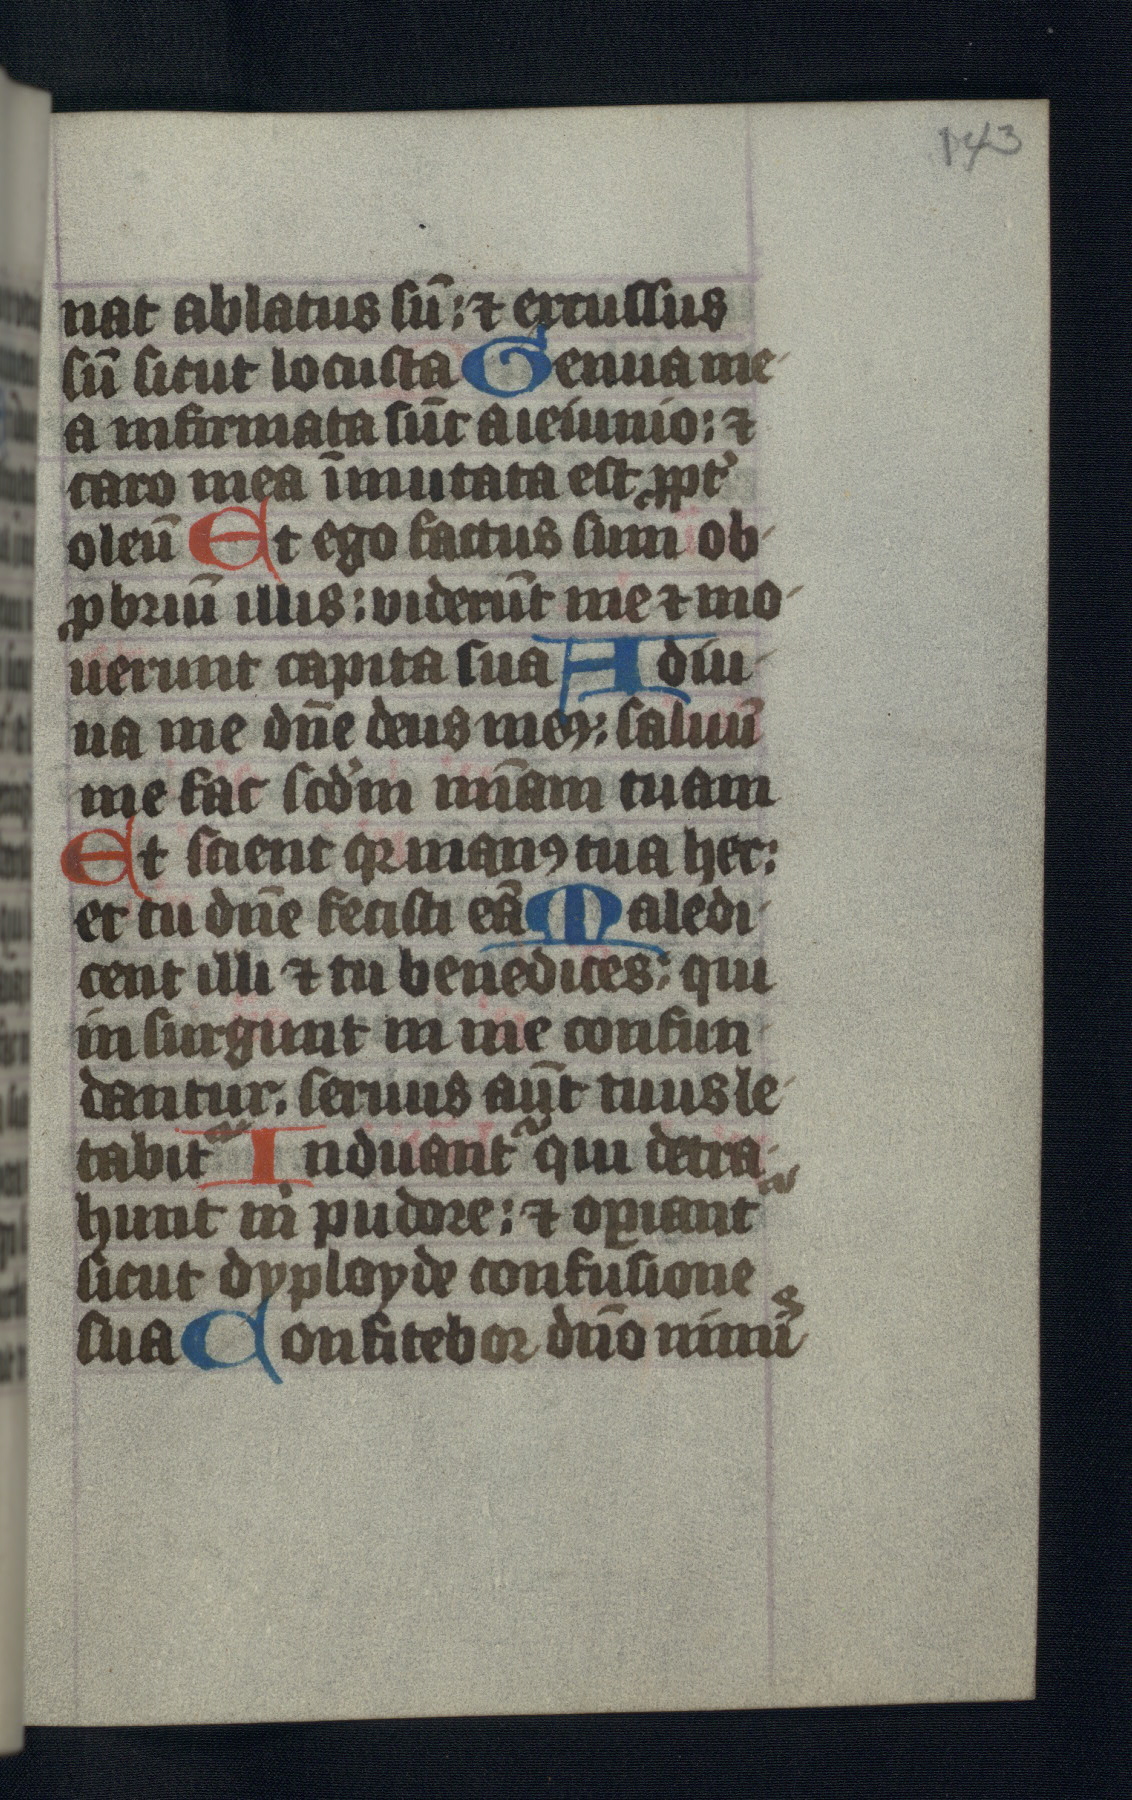 143
nat ablatus sū̄: ⁊ excussus
sū sicut locusta Genua me-
a infirmata sūt a ieiunio: ⁊
caro mea īmutata est ꝓpt᷑
oleū Et ego factus sum ob-
ꝓbriū illis: viderūt me ⁊ mo-
uerunt capita sua Adiu-
ua me dn̄e deus meꝰ: saluū
me fac scd'm mīam tuam
Et scient qꝛ manꝰ tua hec:
et tu dn̄e fecisti eā Maledi-
cent illi ⁊ tu benedices: qui
insurgunt in me confun-
dantur. seruus aūt tuus le-
tabit᷑ Induant᷑ qui detra-
hunt m̍ pudore: ⁊ oꝑiant᷑
sicut dyployde confusione
sua Confitebor dn̄o nimis